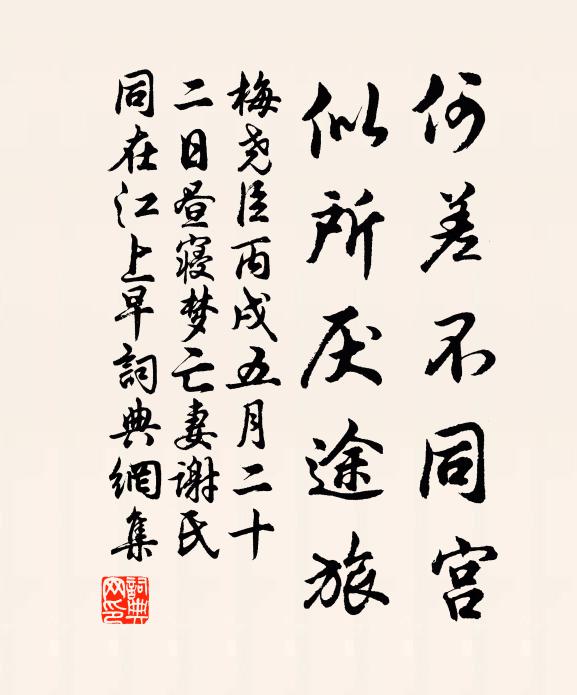 何差不同宫
似所厌途旅
梅尧臣丙戌五月二十
二日昼寝梦亡妻谢氏
同在江上早詞典網集
詞典
网印